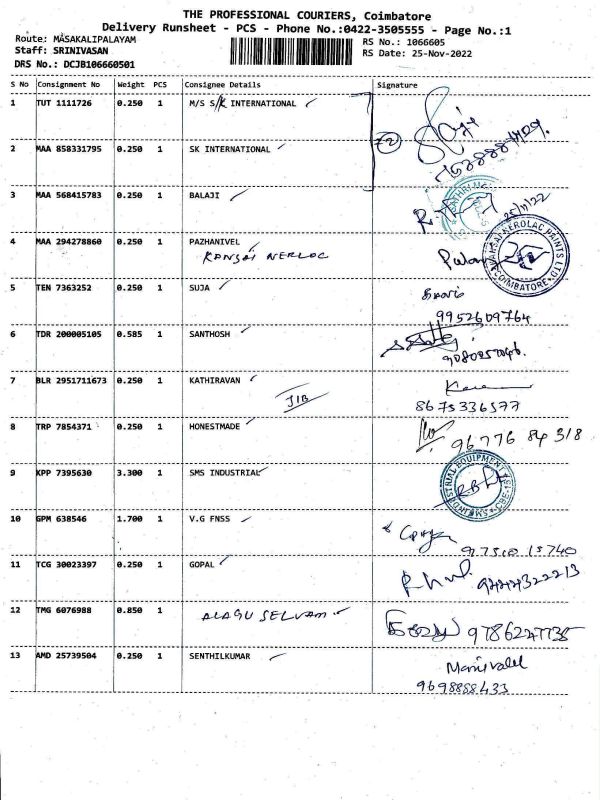 THE PROFESSIONAL COURIERS, Coimbatore
Delivery Runsheet - PCS - Phone No.:0422-3505555 - Page No.:1
Route: MASAKALIPALAYAM
RS No.: 1066605
Staff: SRINIVASAN
RS Date: 25-Nov-2022
DRS No.: DCJB106660501
S No Consignment No Weight PCS Consignee Details Signature
1 TUT 1111726 0.250 1 M/S S/K INTERNATIONAL
2 MAA 858331795 0.250 1 SK INTERNATIONAL
3 MAA 568415783 0.250 1 BALAJI 25/11/22
4 MAA 294278860 0.250 1 PAZHANIVEL
KANSAI NEROLAC PAINTS LTD. COIMBATORE
5 TEN 7363252 0.250 1 SUJA
9952609764
6 TDR 200005105 0.585 1 SANTHOSH
7 BLR 2951711673 0.250 1 KATHIRAVAN
JIB
8675336577
8 TRP 7854371 0.250 1 HONESTMADE
96776 84 318
9 KPP 7395630 3.300 1 SMS INDUSTRIAL
10 GPM 638546 1.700 1 V.G FNSS
11 TCG 30023397 0.250 1 GOPAL
9444322213
12 TMG 6076988 0.850 1 ALAGU SELVAM
13 AMD 25739504 0.250 1 SENTHILKUMAR
9698888433